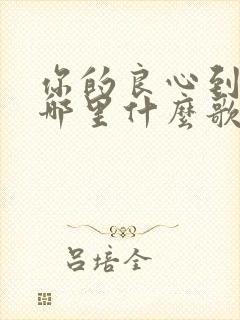 你的良心到
哪里什麼歌
吕培全